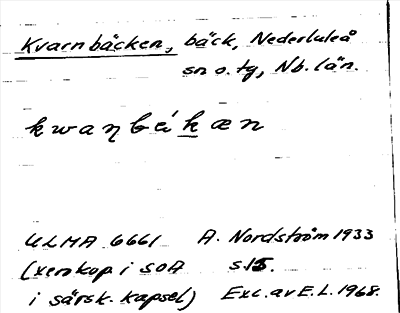 Kvarnbäcken, bäck, Nederluleå
sn o. tg, Nb. län.
kwaŋbékæn
ULMA 6661 A. Nordström 1933
(xerokop. i SOA s. 15.
i särsk. kapsel) Exc. av E.L. 1968.